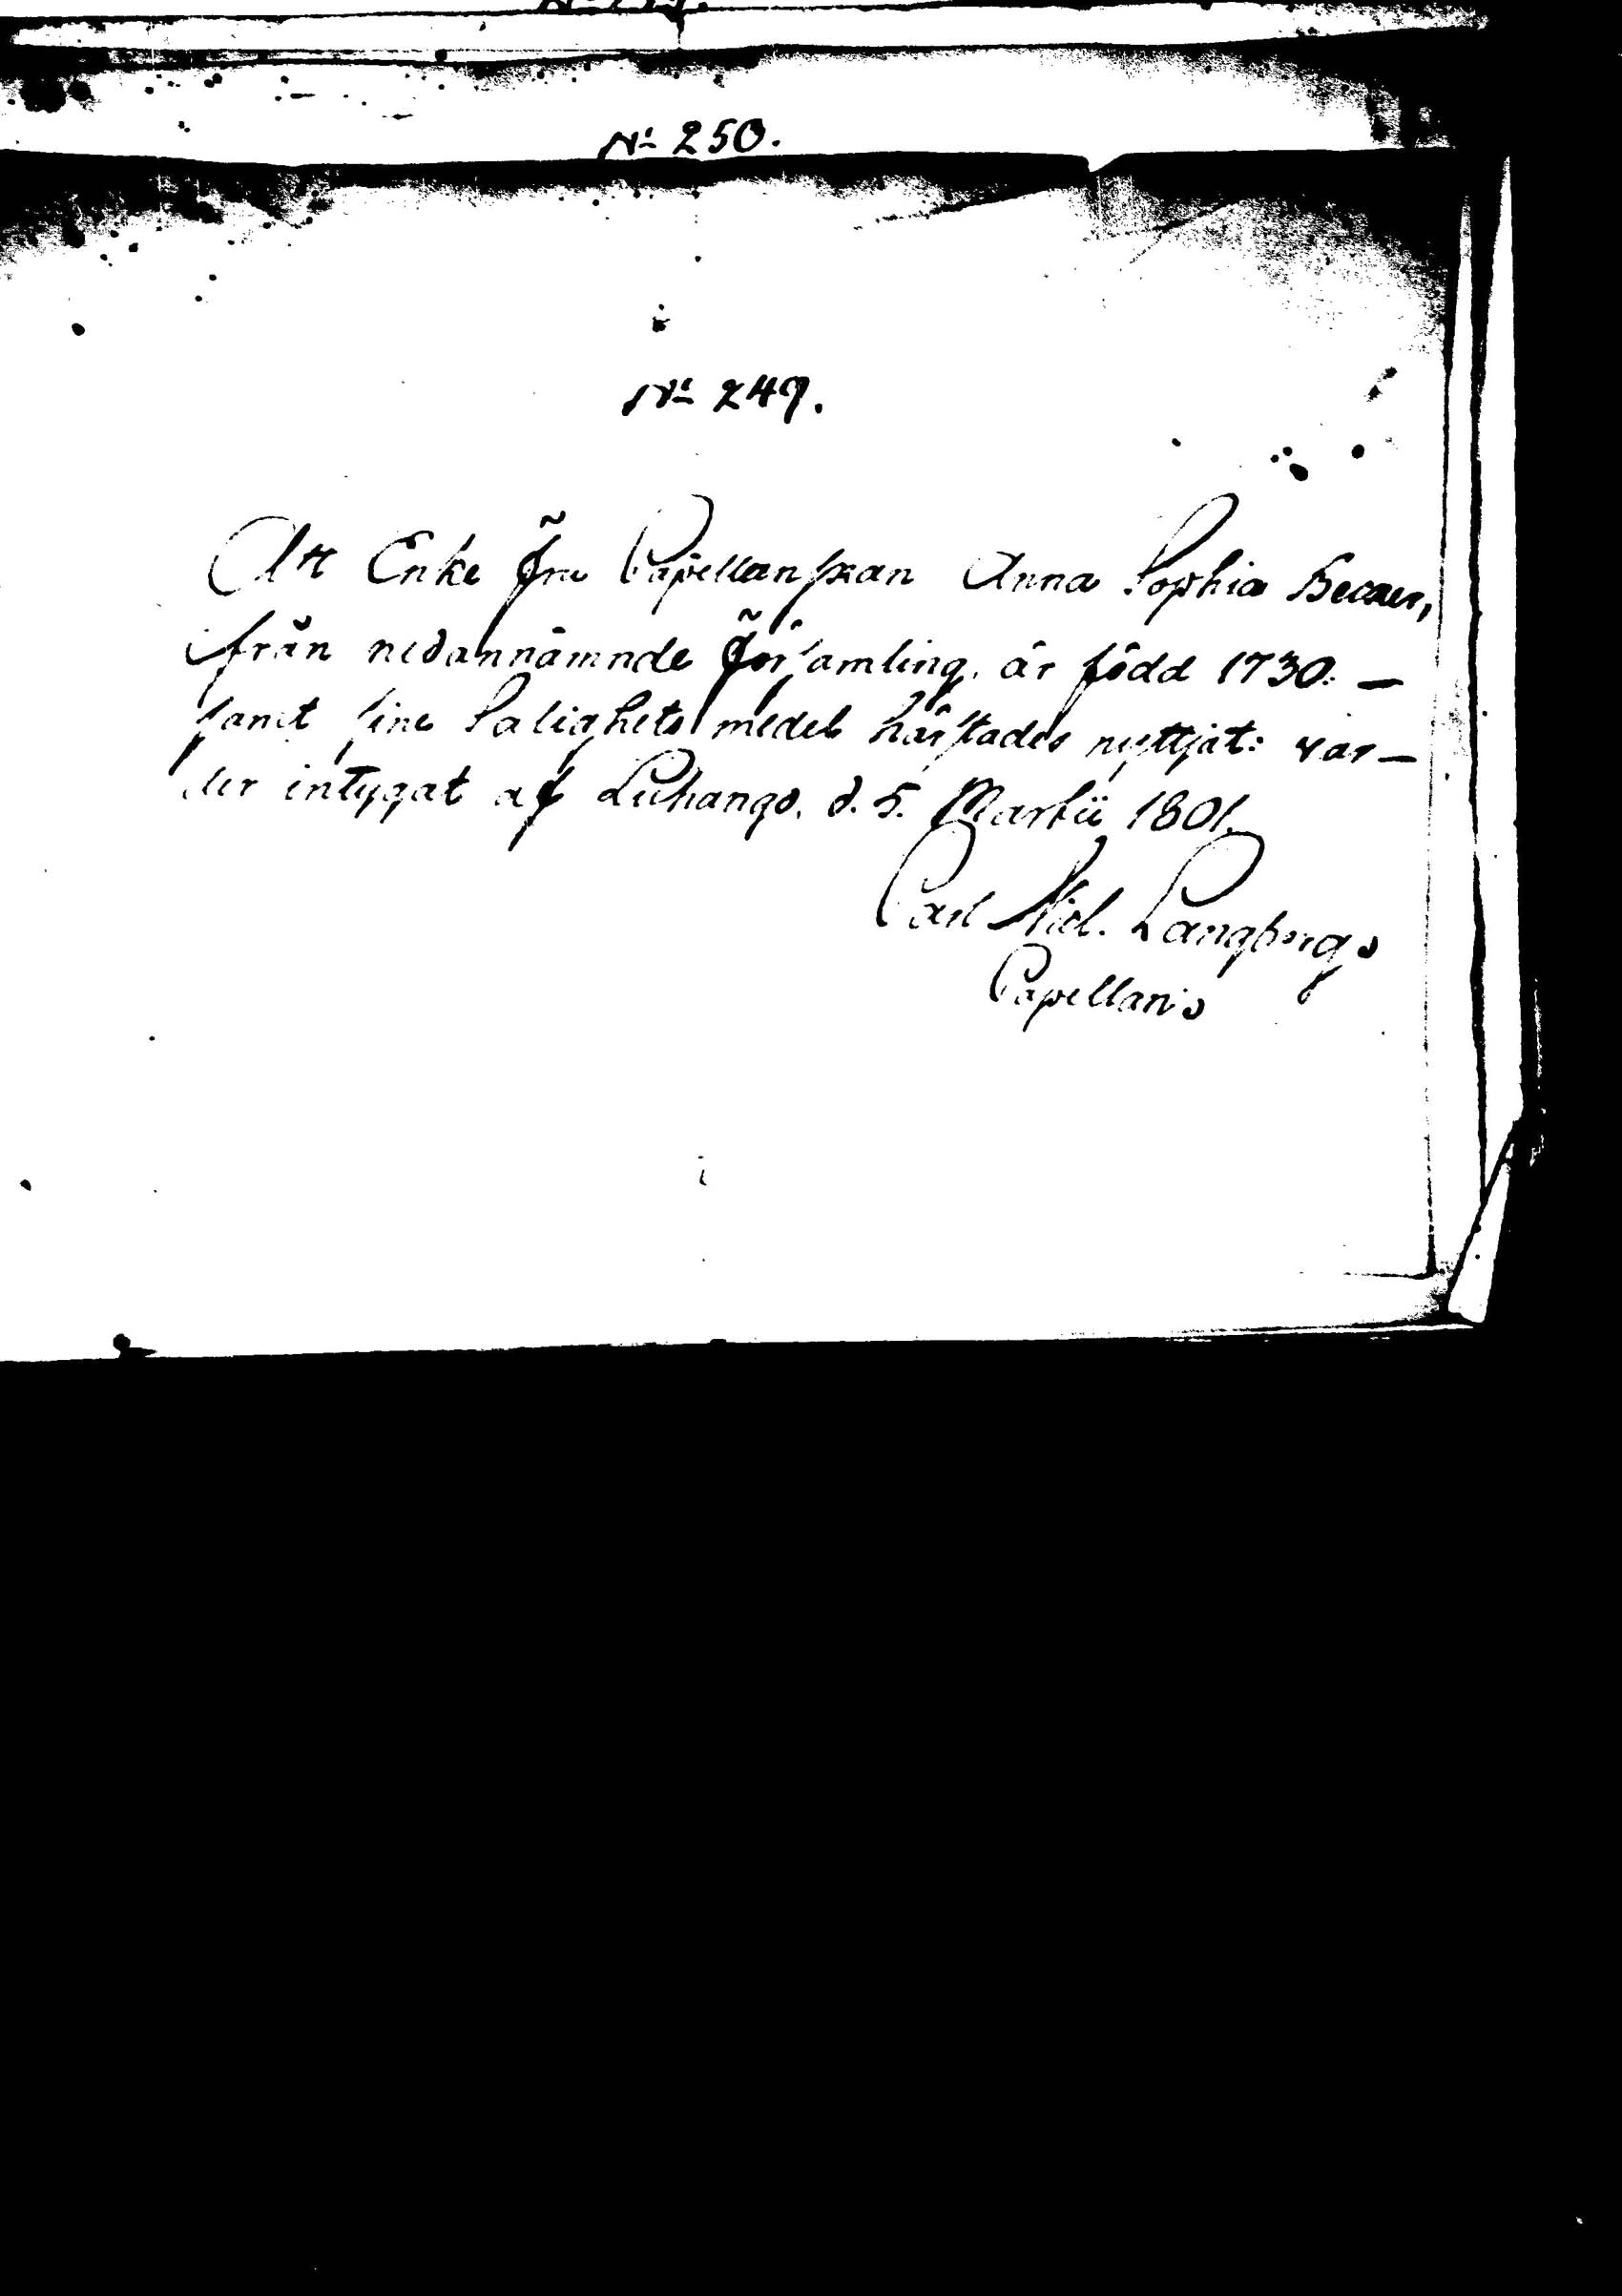 No 250.
No 249.
Att Enke Fru Capellanskan Anna Sophia Becker,
från nedannämnde Församling, är född 1730: —
samt sine Salighets medel härstädes nyttjat: var—
der intygat af Luhango. d. 5. Martii 1801.
Carl Nicl. Langberg
Capellan